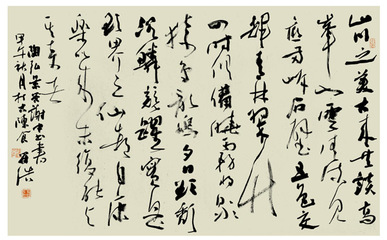 山川之美古來共談高
峰入雲清流見
底兩岸石壁五色交
輝青林翠竹
四時俱備曉霧將歇
猿鳥亂鳴夕日欲頹
沉鱗競躍實是
欲界之仙都自康
樂以來未復能與
其奇者
陶弘景答謝中書書
甲午秋月 浩